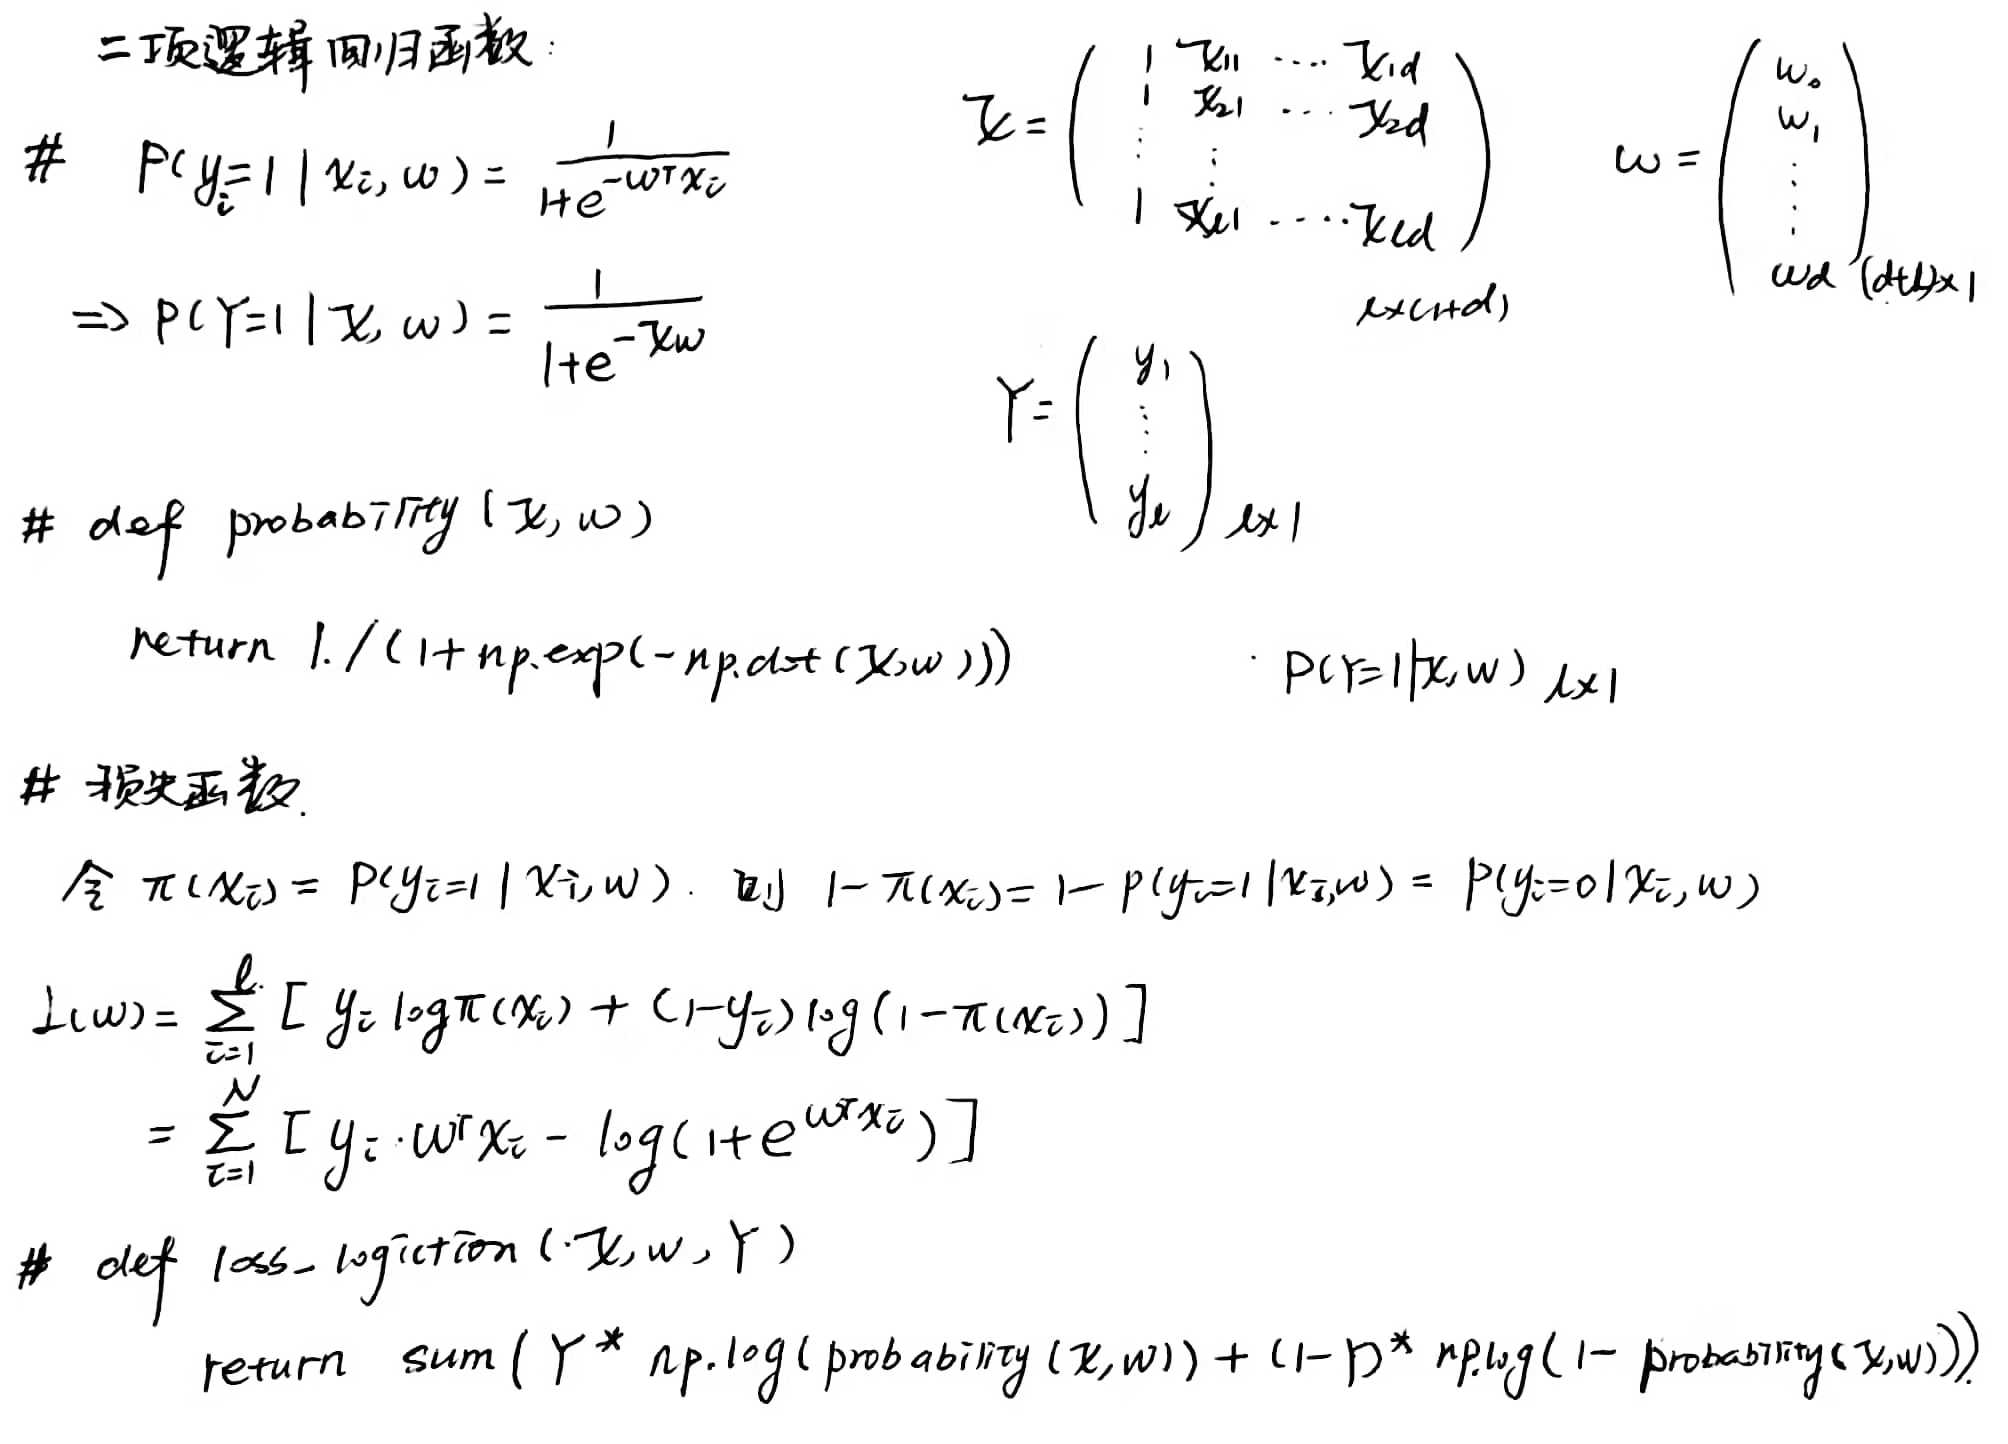 二项逻辑回归函数:
# P(y_i=1 | x_i, w) = 1 / (1+e^{-w^T x_i})
⇒ P(Y=1 | X, w) = 1 / (1+e^{-Xw})
X = ( 1 x_{11} ···· x_{1d}
1 x_{21} ···· x_{2d}
⋮ ⋮
1 x_{l1} ····· x_{ld} )
l×(1+d)
w = ( w_0
w_1
⋮
w_d ) (d+1)×1
Y = ( y_1
⋮
y_l ) l×1
# def probability (X, w)
return 1. / (1+np.exp(-np.dot(X,w)))
P(Y=1|X, w) l×1
# 损失函数.
令 π(x_i) = P(y_i=1 | x_i, w). 则 1-π(x_i) = 1-P(y_i=1 | x_i,w) = P(y_i=0 | x_i, w)
L(w) = ∑_{i=1}^{l} [ y_i log π(x_i) + (1-y_i) log(1-π(x_i)) ]
= ∑_{i=1}^{N} [ y_i · w^T x_i - log(1+e^{w^T x_i}) ]
# def loss_logiction (X, w, Y)
return sum( Y * np.log(probability(X,w)) + (1-Y) * np.log(1- probability(X,w))).